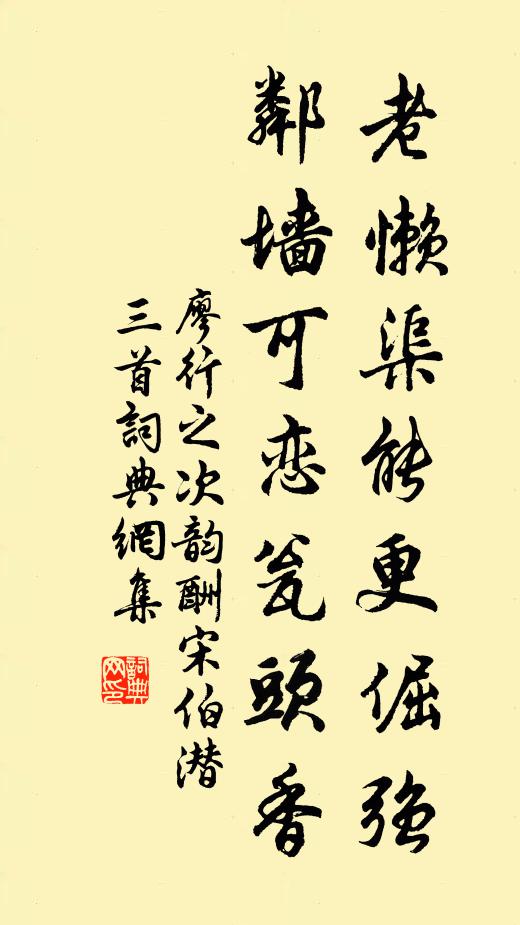 老懒渠能更倔强
鄰墙可恋瓮頭香
廖行之次韵酬宋伯潜
三首詞典網集
詞典网印